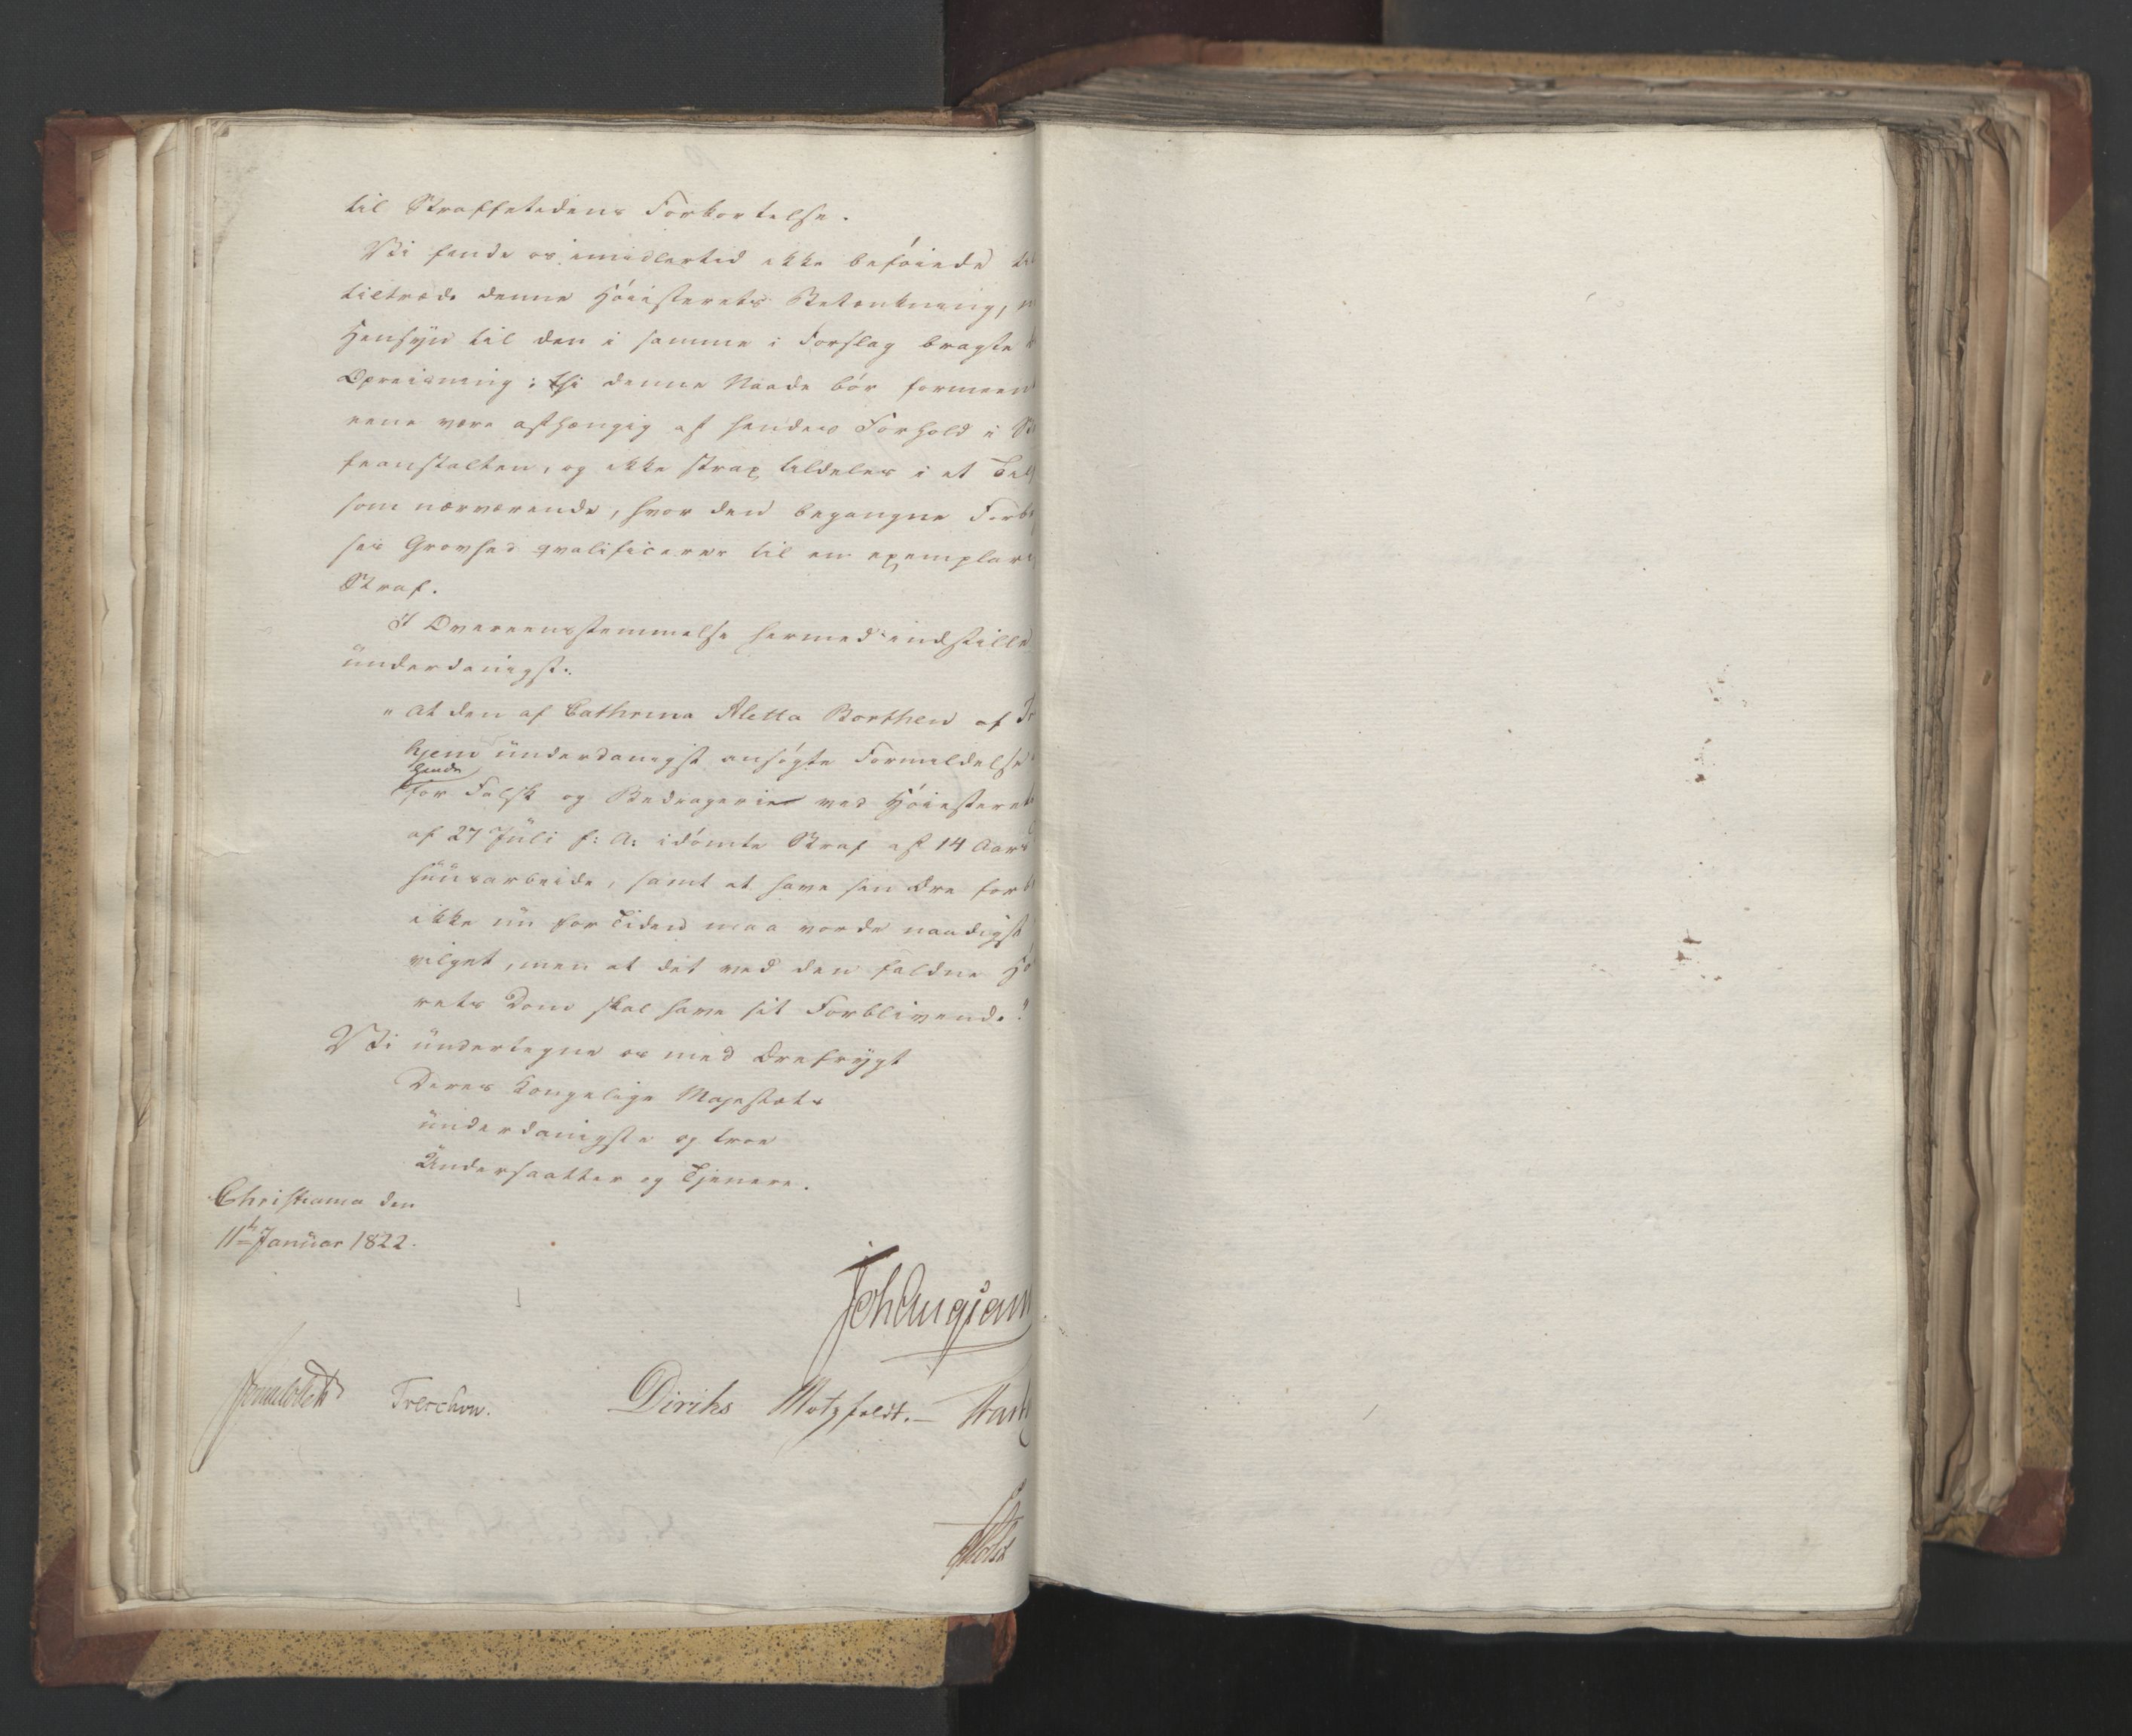 til Straffetidens Forkortelse.
Vi finde os imidlertid ikke beføiede
tiltræde denne Høiesterets Betænkning,
Hensyn til den i samme i Forslag bragte
Opreisning; thi denne Naade bør formeen
eene være afhængig af hendes Forhold i
feanstalten, og ikke strax tildeles i et
som nærværende, hvor den begangne
ses Grovhed qvalificerer til en exemplari
Straf.
I Overeensstemmelse hermed indstille
underdanigst:
"at den af Cathrina Aletta Borthen af
hjem underdanigst ansøgte Formildelse
hende
for Falsk og Bedragerie ved Høiesteret
af 27 Juli f: A: idømte Straf af 14 Aars
huusarbeide, samt at have sin Ære
ikke nu for Tiden maa vorde naadigst
vilget, men at det ved den faldne
rets Dom skal have sit Forblivende."
Vi undertegne os med Ærefrygt
Deres Kongelige Majestæts
underdanigste og troe
Undersaatter og Tjenere.
Christiania den
11te Januar 1822.
Sommerhielm Treschow. Diriks Motzfeldt.
Holst